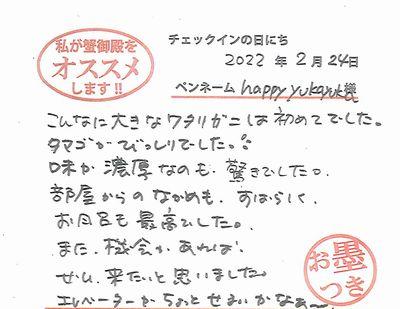 私が蟹御殿を
オススメ
します!!
チェックインの日にち
2022 年 2 月 24日
ペンネーム happy yukayuk様
こんなに大きなワタリガニは初めてでした。
タマゴがびっしりでした。
味が濃厚なのも、驚きでした。
部屋からのながめも、すばらしく
お風呂も最高でした。
また、機会があれば、
ぜひ、来たいと思いました。
エレベーターがちょっとせまいかなあ〜
お墨
つき